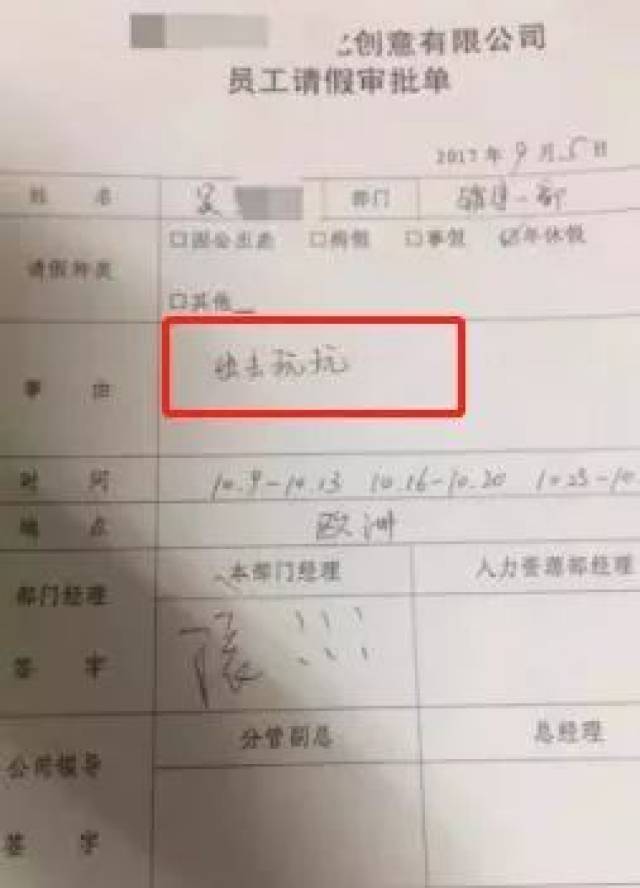 创意有限公司
员工请假审批单
2017年9月5日
姓 名 吴 部门 销售一部
请假种类 □因公出差 □病假 □事假 ☑年休假
□其他
事 由 出去玩玩
时 间 10.9-10.13 10.16-10.20 10.23-10.
地 点 欧洲
部门经理签字 本部门经理 人力资源部经理
公司领导签字 分管副总 总经理